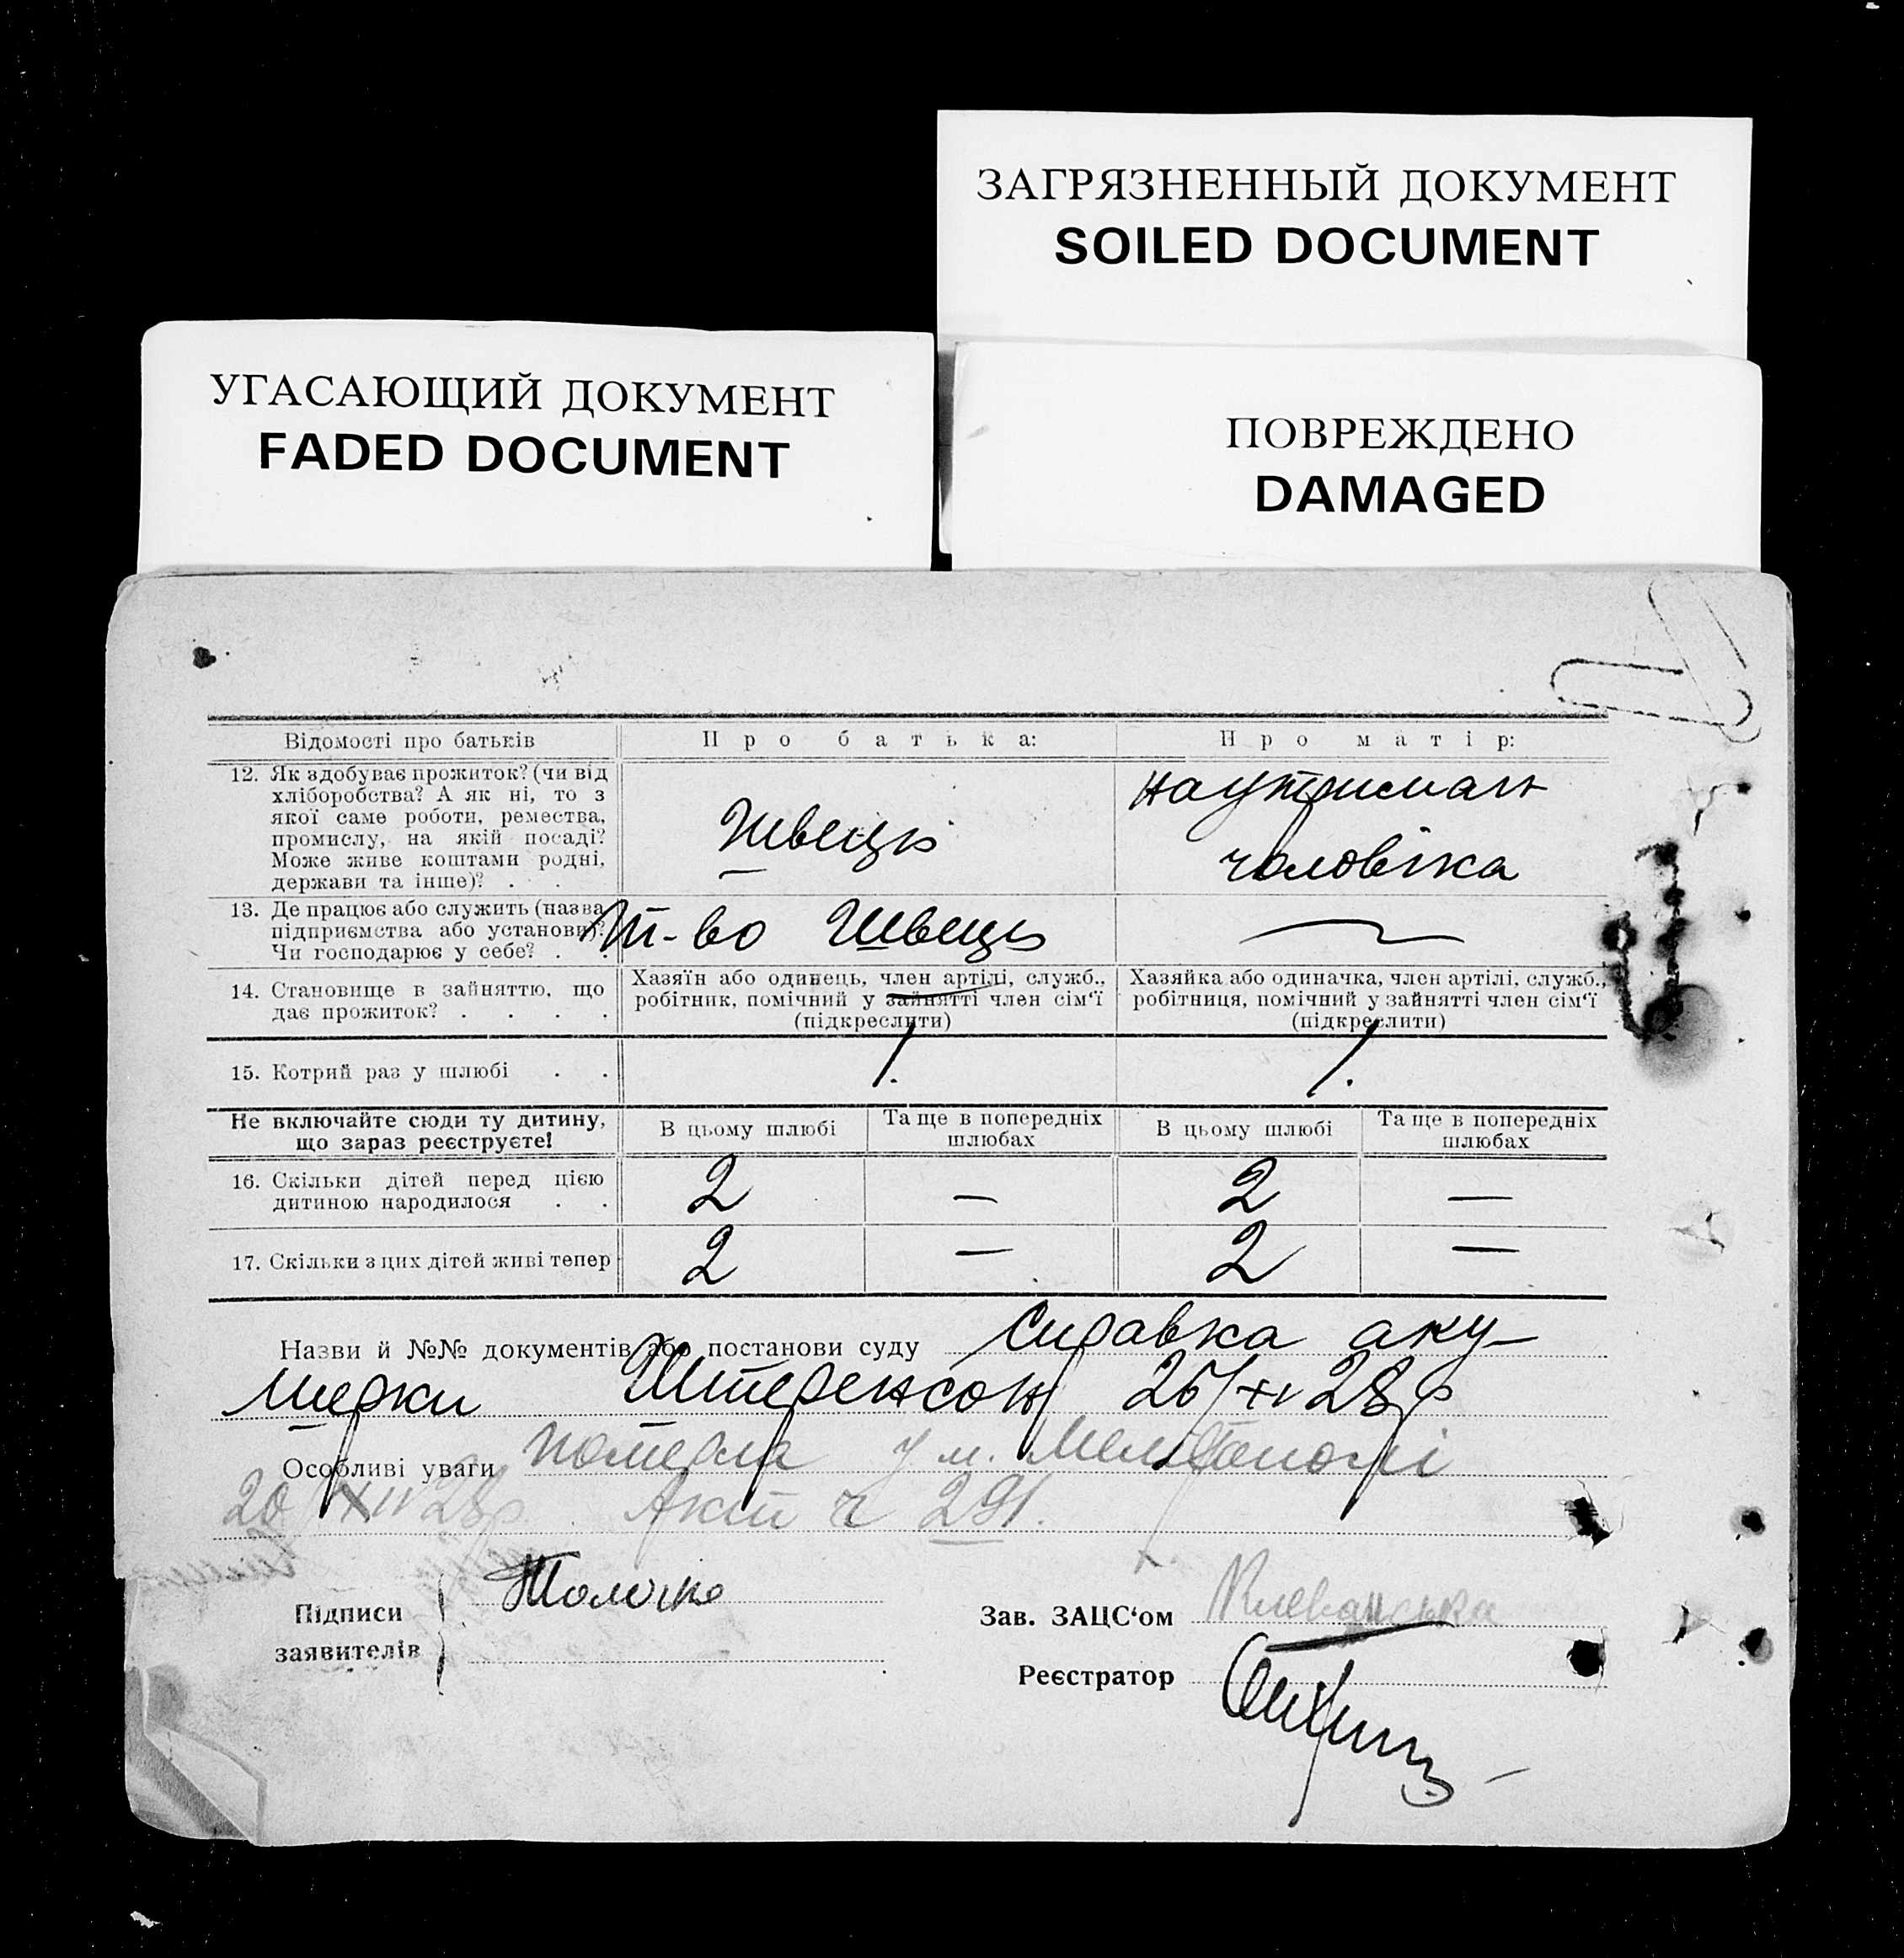 ЗАГРЯЗНЕННЫЙ ДОКУМЕНТ
SOILED DOCUMENT
УГАСАЮЩИЙ ДОКУМЕНТ
FADED DOCUMENT
ПОВРЕЖДЕНО
DAMAGED
Відомості про батьків
Про батька:
Про матір:
12. Як здобуває прожиток? (чи від
хліборобства? А як ні, то з
якої саме роботи, ремества,
промислу, на якій посаді?
Може живе коштами родні,
держави та інше)? . .
Швець
на утриман
чоловіка
13. Де працює або служить (назва
підприємства або установи)?
Чи господарює у себе? . .
Т-во Швець
14. Становище в зайняттю, що
дає прожиток? . . . .
Хазяїн або одинець, член артілі, служб.,
робітник, помічний у зайнятті член сім'ї
(підкреслити)
Хазяйка або одиначка, член артілі, служб.,
робітниця, помічний у зайнятті член сім'ї
(підкреслити)
15. Котрий раз у шлюбі . .
1.
1.
Не включайте сюди ту дитину,
що зараз реєструєте!
В цьому шлюбі
Та ще в попередніх
шлюбах
В цьому шлюбі
Та ще в попередніх
шлюбах
16. Скільки дітей перед цією
дитиною народилося . .
2
—
2
—
17. Скільки з цих дітей живі тепер
2
—
2
—
Назви й №№ документів або постанови суду Справка аку-
шерки Штеренсон 28 р
Особливі уваги померла у м. Мелітополі
20/XII 28р. Акт ч 291.
Підписи
заявителів
Зав. ЗАЦС'ом Клеванська
Реєстратор